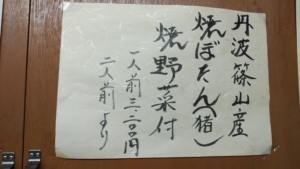 丹波篠山産
焼ぼたん(猪)
焼野菜付
一人前三、二〇〇円
二人前より